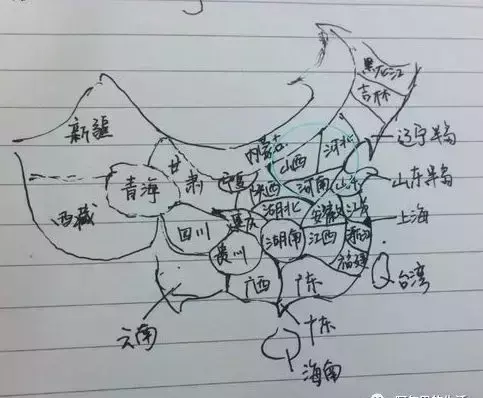 黑龙江
吉林
辽宁半岛
新疆
内蒙古
甘肃
山西
河北
青海
宁夏
陕西
河南
山东
山东半岛
西藏
重庆
湖北
安徽
江苏
上海
四川
贵州
湖南
江西
浙江
福建
台湾
云南
广西
广东
广东
海南